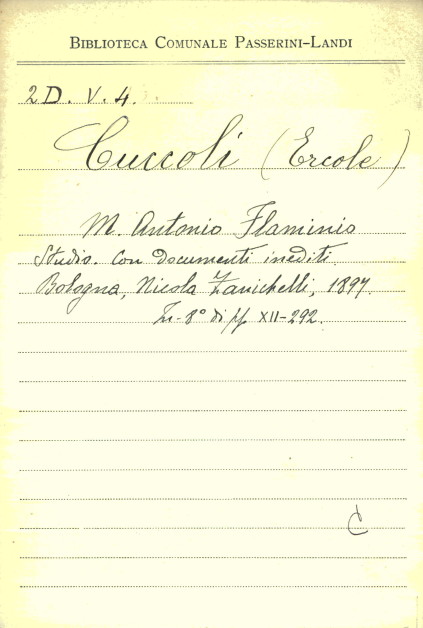 BIBLIOTECA COMUNALE PASSERINI-LANDI
2 D. V. 4.
Cuccoli (Ercole)
M. Antonio Flaminio
Studio. Con documenti inediti
Bologna, Nicola Zanichelli, 1897.
In-8° di pp XII-292.
C